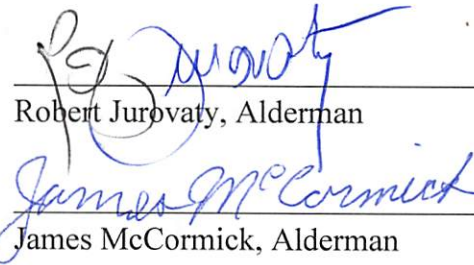 Jurovaty
Robert Jurovaty, Alderman
James McCormick
James McCormick, Alderman